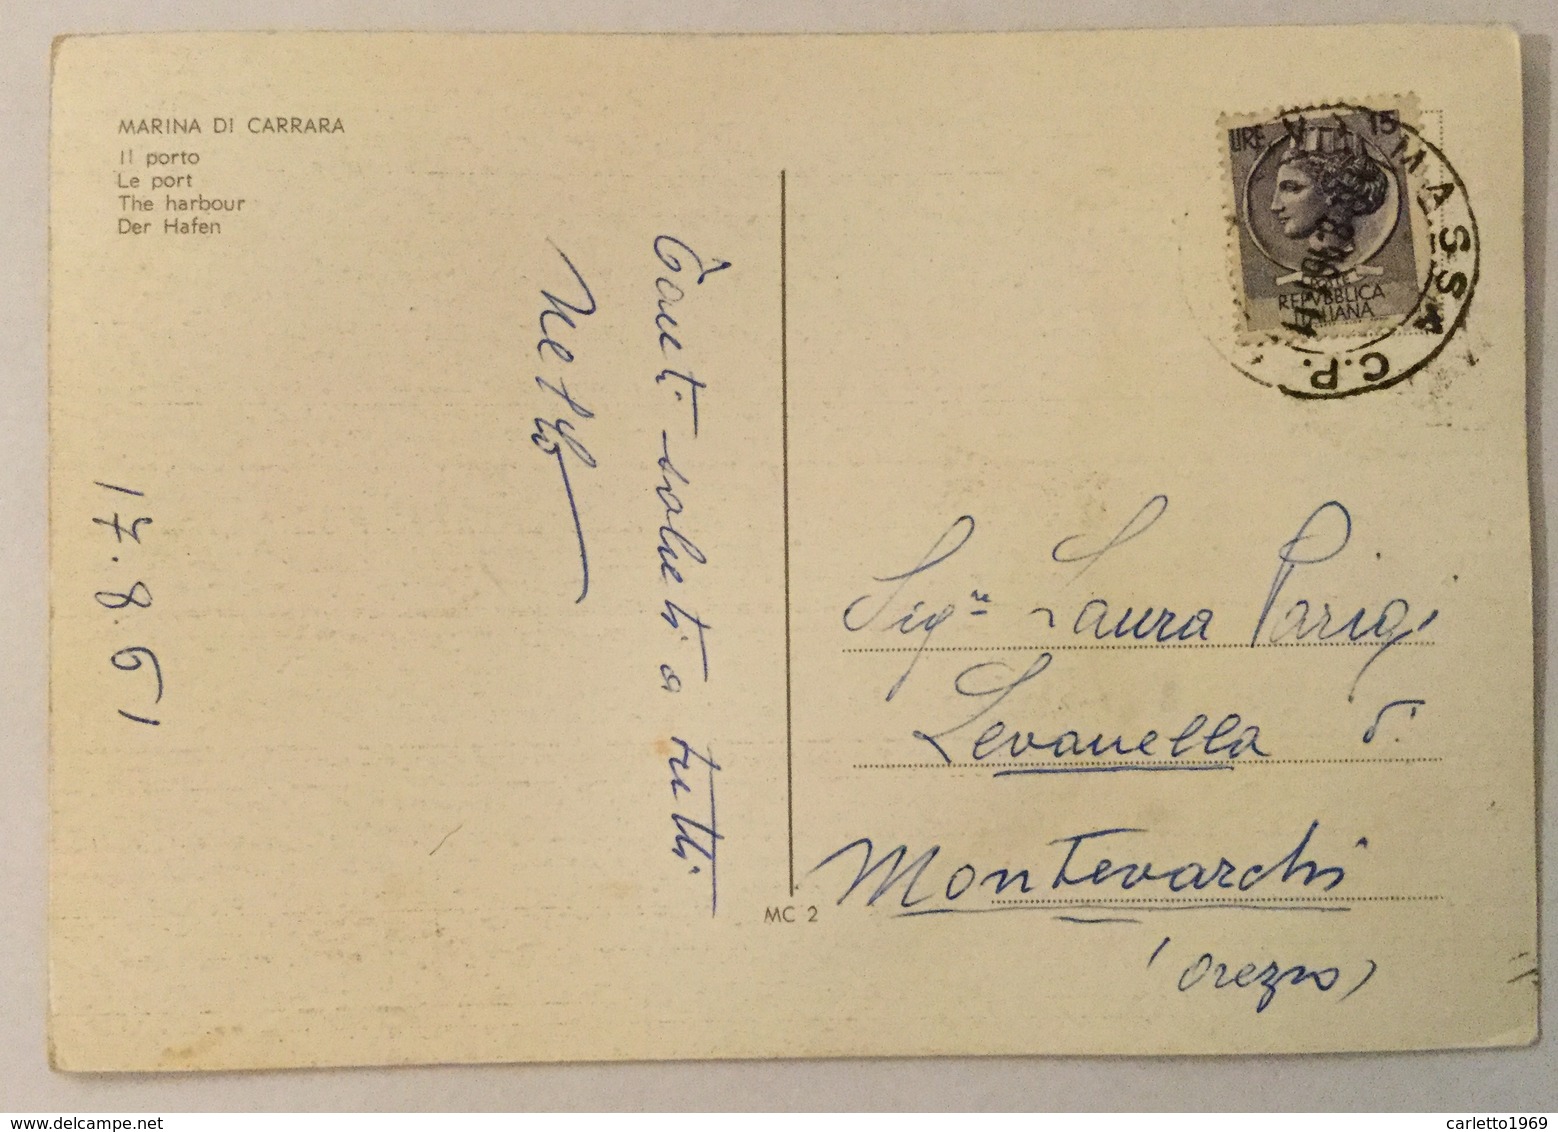 MARINA DI CARRARA
Il porto
Le port
The harbour
Der Hafen
17.8.61
Tanti saluti a tutti
LIRE 15
REPVBBLICA
ITALIANA
MASSA C.P.
Sig.re Laura Parigi
Levanella
Montevarchi
(Arezzo)
MC 2
carletto1969